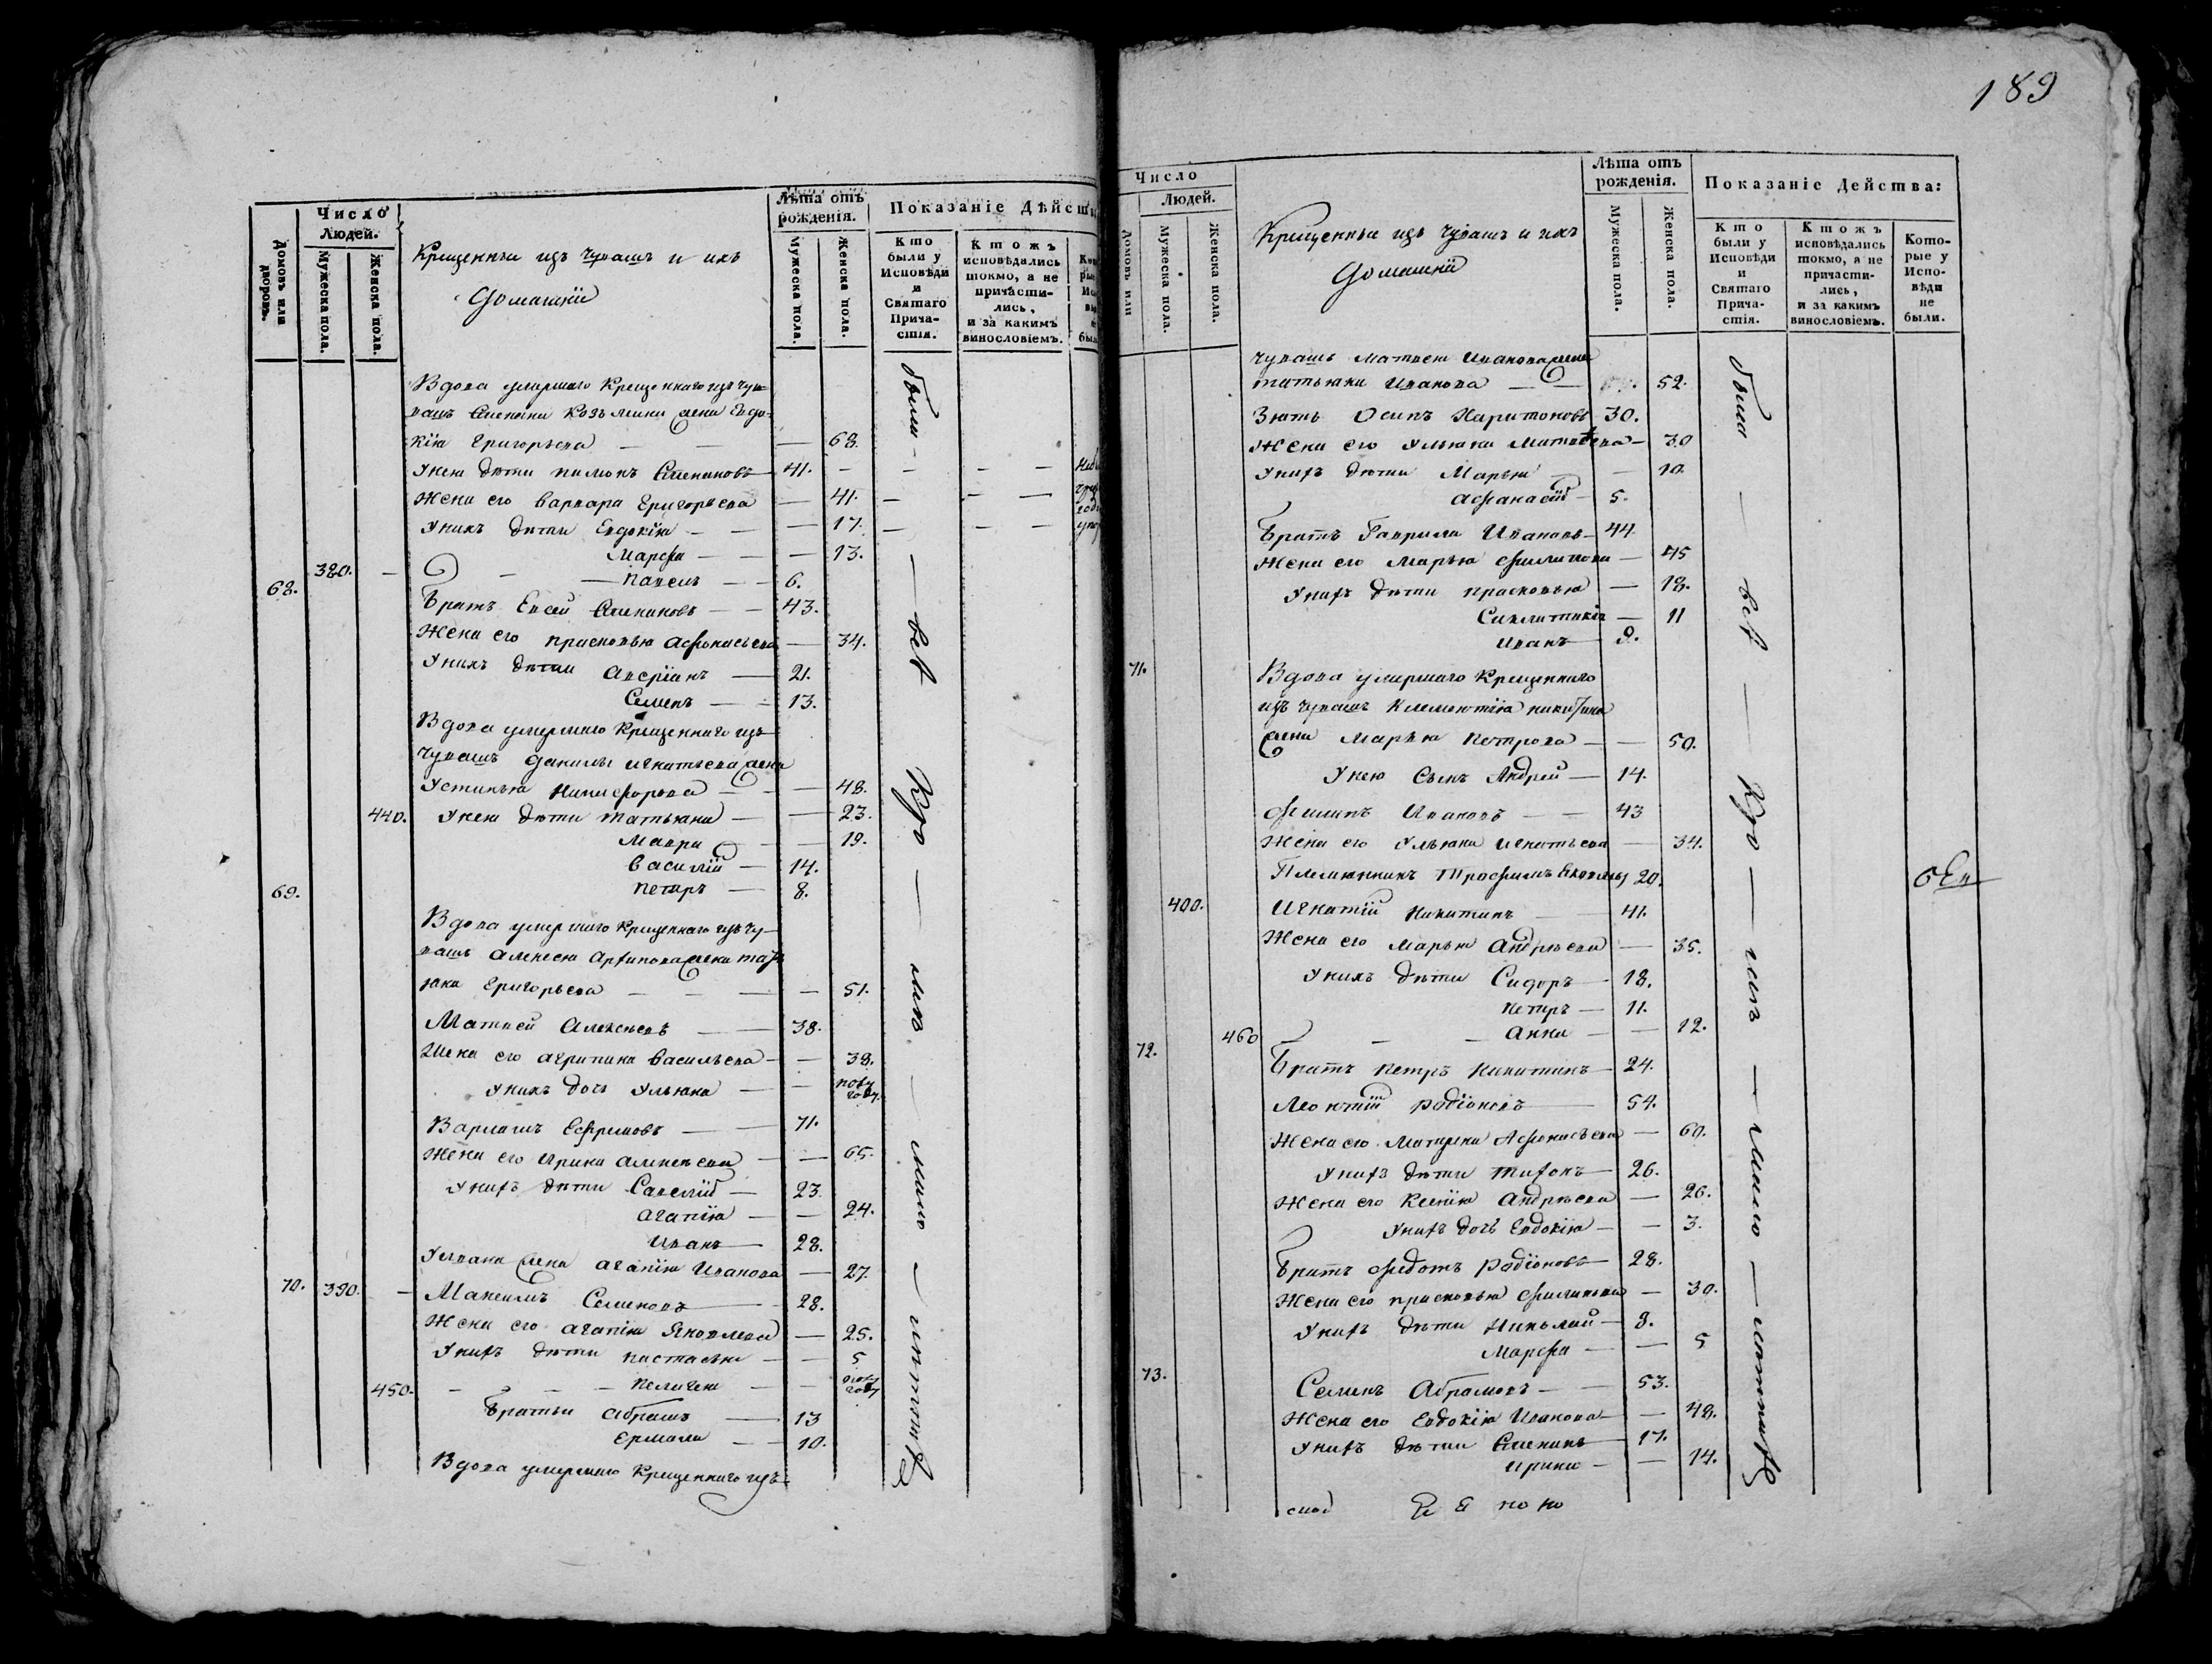 Число
Людей.
Домовъ или дворовъ.
Мужеска пола.
Женска пола.
Крещенныи изъ чувашъ и ихъ
Домашнiи
Лѣта отъ рожденiя.
Мужеска пола.
Женска пола.
Показанiе Дѣйст
Кто были у Исповѣди и Святаго Прича-стiя.
Ктожъ исповѣдались токмо, а не причасти-лись, и за какимъ винословiемъ.
Вдова умершаго Крещеннаго изъ чу-
вашъ Степана Козьмина жена Евдо-
кiя Григорьева — — 68.
У нею дѣти Пимонъ Степановъ 41. — — —
Жена его Варвара Григорьева — 41. — — —
У нихъ дѣти Евдокiя — — 17. — — —
Марфа — — 13.
68. 380. — — Павелъ — 6.
Братъ Евсей Степановъ — 43.
Жена его Прасковья Афонасьева — 34.
У нихъ дѣти Аверiанъ — 21.
Семенъ — 13.
Вдова умершаго Крещеннаго изъ
чувашъ Данилы Игнатьева жена
Устинья Никифорова — — 48.
440. У нею дѣти Татьяна — — 23.
Мавра — — 19.
Василiй — 14.
69. Петръ — 8.
Вдова умершаго Крещеннаго изъ чу-
вашъ Алексея Архипова жена Тать
яна Григорьева — — — 51.
Матвей Алексеевъ — 38.
Жена его Агрипина Васильева — — 38.
У нихъ дочь Ульяна — — полу году.
Варламъ Ефремовъ — 71.
Жена его Ирина Алексеева — — 65.
У нихъ дѣти Савелiй — 23.
Агапiя — — 24.
Иванъ — 28.
У Ивана жена Агапiя Иванова — 27.
70. 390. — Максимъ Семеновъ — 28.
Жена его Агапiя Яковлева — 25.
У нихъ дѣти Настасья — — 5
450. — — — Пелагея — — полу году
Братьи Абрамъ — 13
Ермала — 10.
Вдова умершаго Крещеннаго изъ
были — — всѣ — — —
189
Число
Людей.
Домовъ или
Мужеска пола.
Женска пола.
Крещенныи изъ чувашъ и ихъ
Домашнiи
Лѣта отъ рожденiя.
Мужеска пола.
Женска пола.
Показанiе Действа:
Кто были у Исповѣди и Святаго Прича-стiя.
Ктожъ исповѣдались токмо, а не причасти-лись, и за какимъ винословiемъ.
Кото-рые у Испо-вѣди не были.
чувашъ Матвея Иванова жена
Татьяна Иванова — — 52.
Зять Осипъ Харитоновъ 30.
Жена его Ульяна Матвѣева — 30
У нихъ дѣти Марья — — 10.
Афанасiй — 5.
Братъ Гаврила Ивановъ — 44.
Жена его Марья Филипова — 45
У нихъ дѣти Прасковья — 18.
Сиклитикiя — 11
Иванъ — 9.
71. Вдова умершаго Крещеннаго
изъ чувашъ Клементiя Никитина
жена Марья Петрова — — 50.
У нею сынъ Андрей — 14.
Филипъ Ивановъ — — 43
Жена его Ульяна Игнатьева — 34.
Племянникъ Трофимъ Яковлевъ 20.
400. Игнатiй Никитинъ — 41.
Жена его Марья Андрѣева — 35.
У нихъ дѣти Сидоръ — 18.
Петръ — 11.
72. 460 — — Анна — — 12.
Братъ Петръ Никитинъ — 24.
Леонтiй Родiоновъ — 54.
Жена его Матрена Афонасьева — 60.
У нихъ дѣти Тихонъ — 26.
Жена его Ксенiя Андрѣева — 26.
У нихъ дочь Евдокiя — — 3.
Братъ Федотъ Родiоновъ — 28.
Жена его Прасковья Филипова — 30.
У нихъ дѣти Николай — 8.
Марфа — — 5
73. Семенъ Абрамовъ — — 53.
Жена его Евдокiя Иванова — — 48.
У нихъ дѣти Степанъ — 17.
Ирина — — 14.
были — всѣ — — —